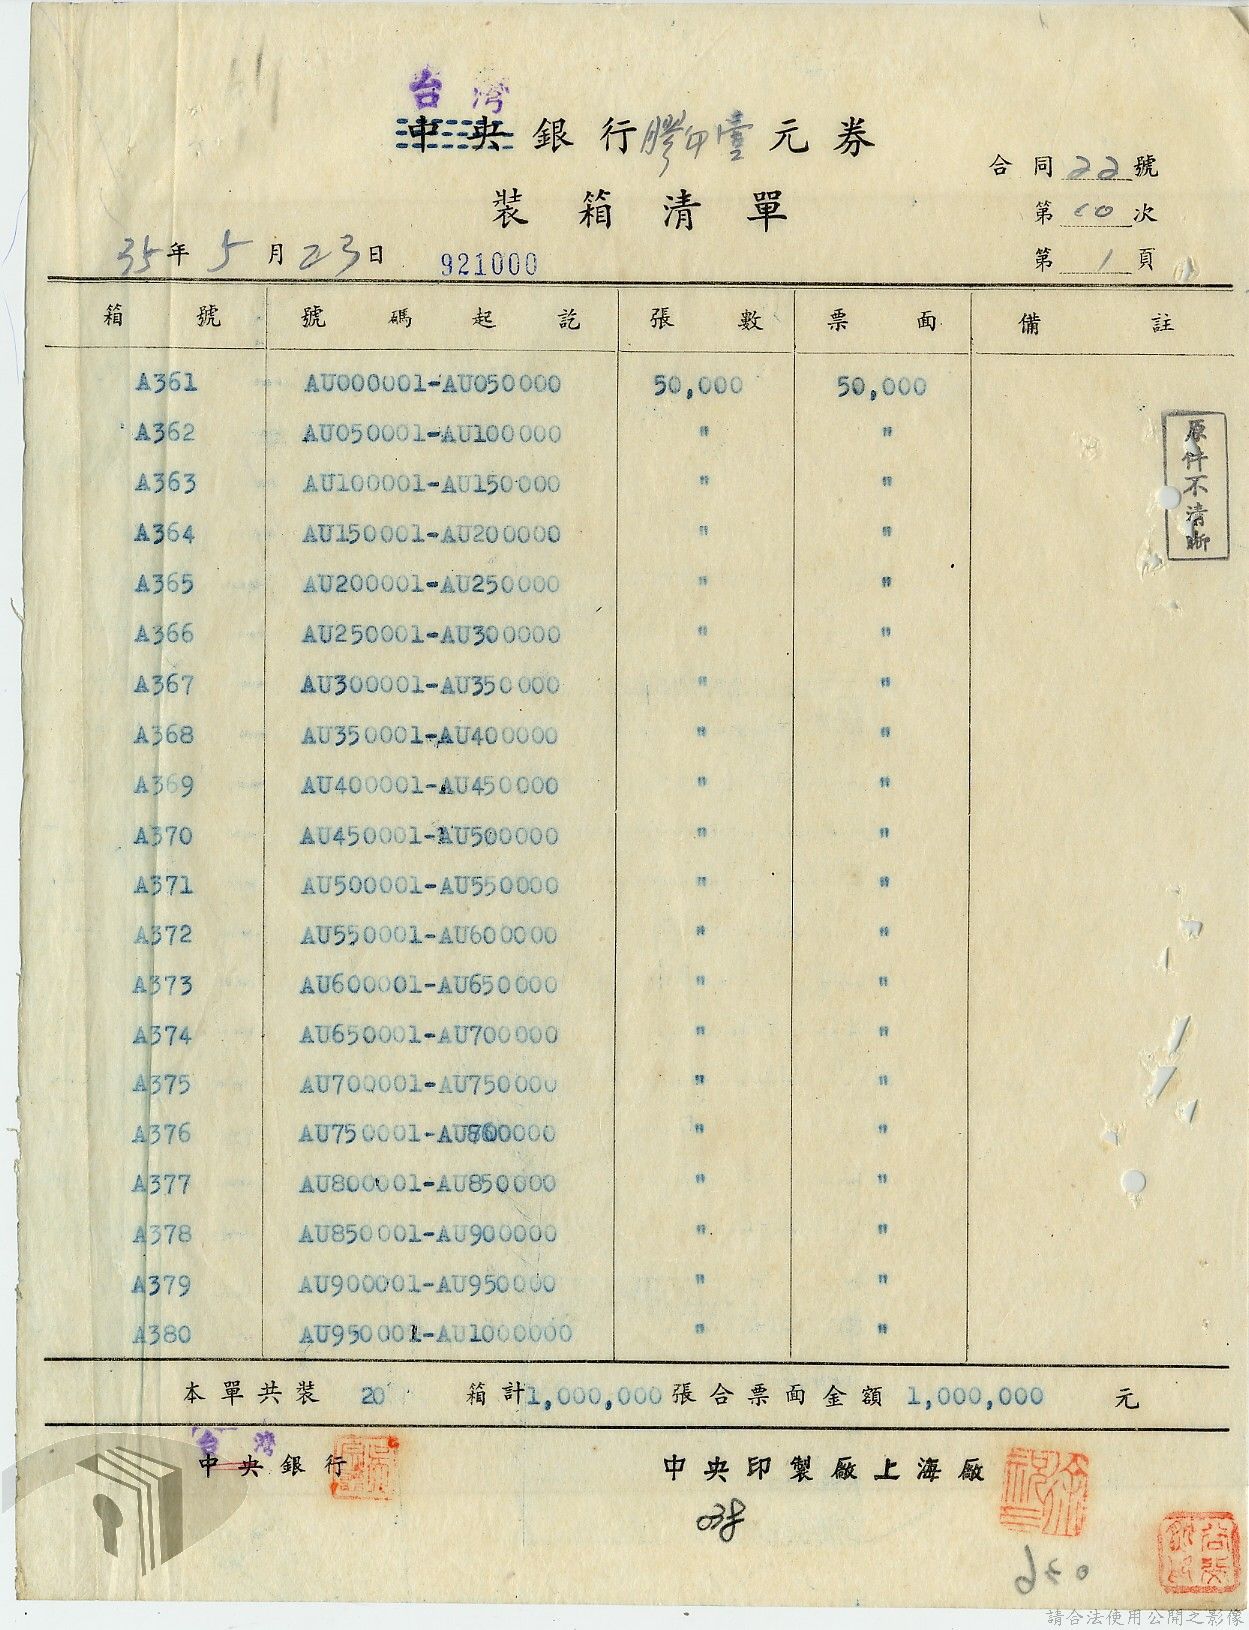 台灣
中央銀行膠印壹元券
合同22號
裝箱清單
第10次
35年5月23日 921000
第1頁
箱號 號碼起訖 張數 票面 備註
A361 AU000001-AU050000 50,000 50,000
A362 AU050001-AU100000 " "
A363 AU100001-AU150000 " "
A364 AU150001-AU200000 " "
A365 AU200001-AU250000 " "
A366 AU250001-AU300000 " "
A367 AU300001-AU350000 " "
A368 AU350001-AU400000 " "
A369 AU400001-AU450000 " "
A370 AU450001-AU500000 " "
A371 AU500001-AU550000 " "
A372 AU550001-AU600000 " "
A373 AU600001-AU650000 " "
A374 AU650001-AU700000 " "
A375 AU700001-AU750000 " "
A376 AU750001-AU800000 " "
A377 AU800001-AU850000 " "
A378 AU850001-AU900000 " "
A379 AU900001-AU950000 " "
A380 AU950001-AU1000000 " "
原件不清晰
本單共裝 20 箱計1,000,000張合票面金額 1,000,000 元
台灣
中央銀行
中央印製廠上海廠
請合法使用公開之影像